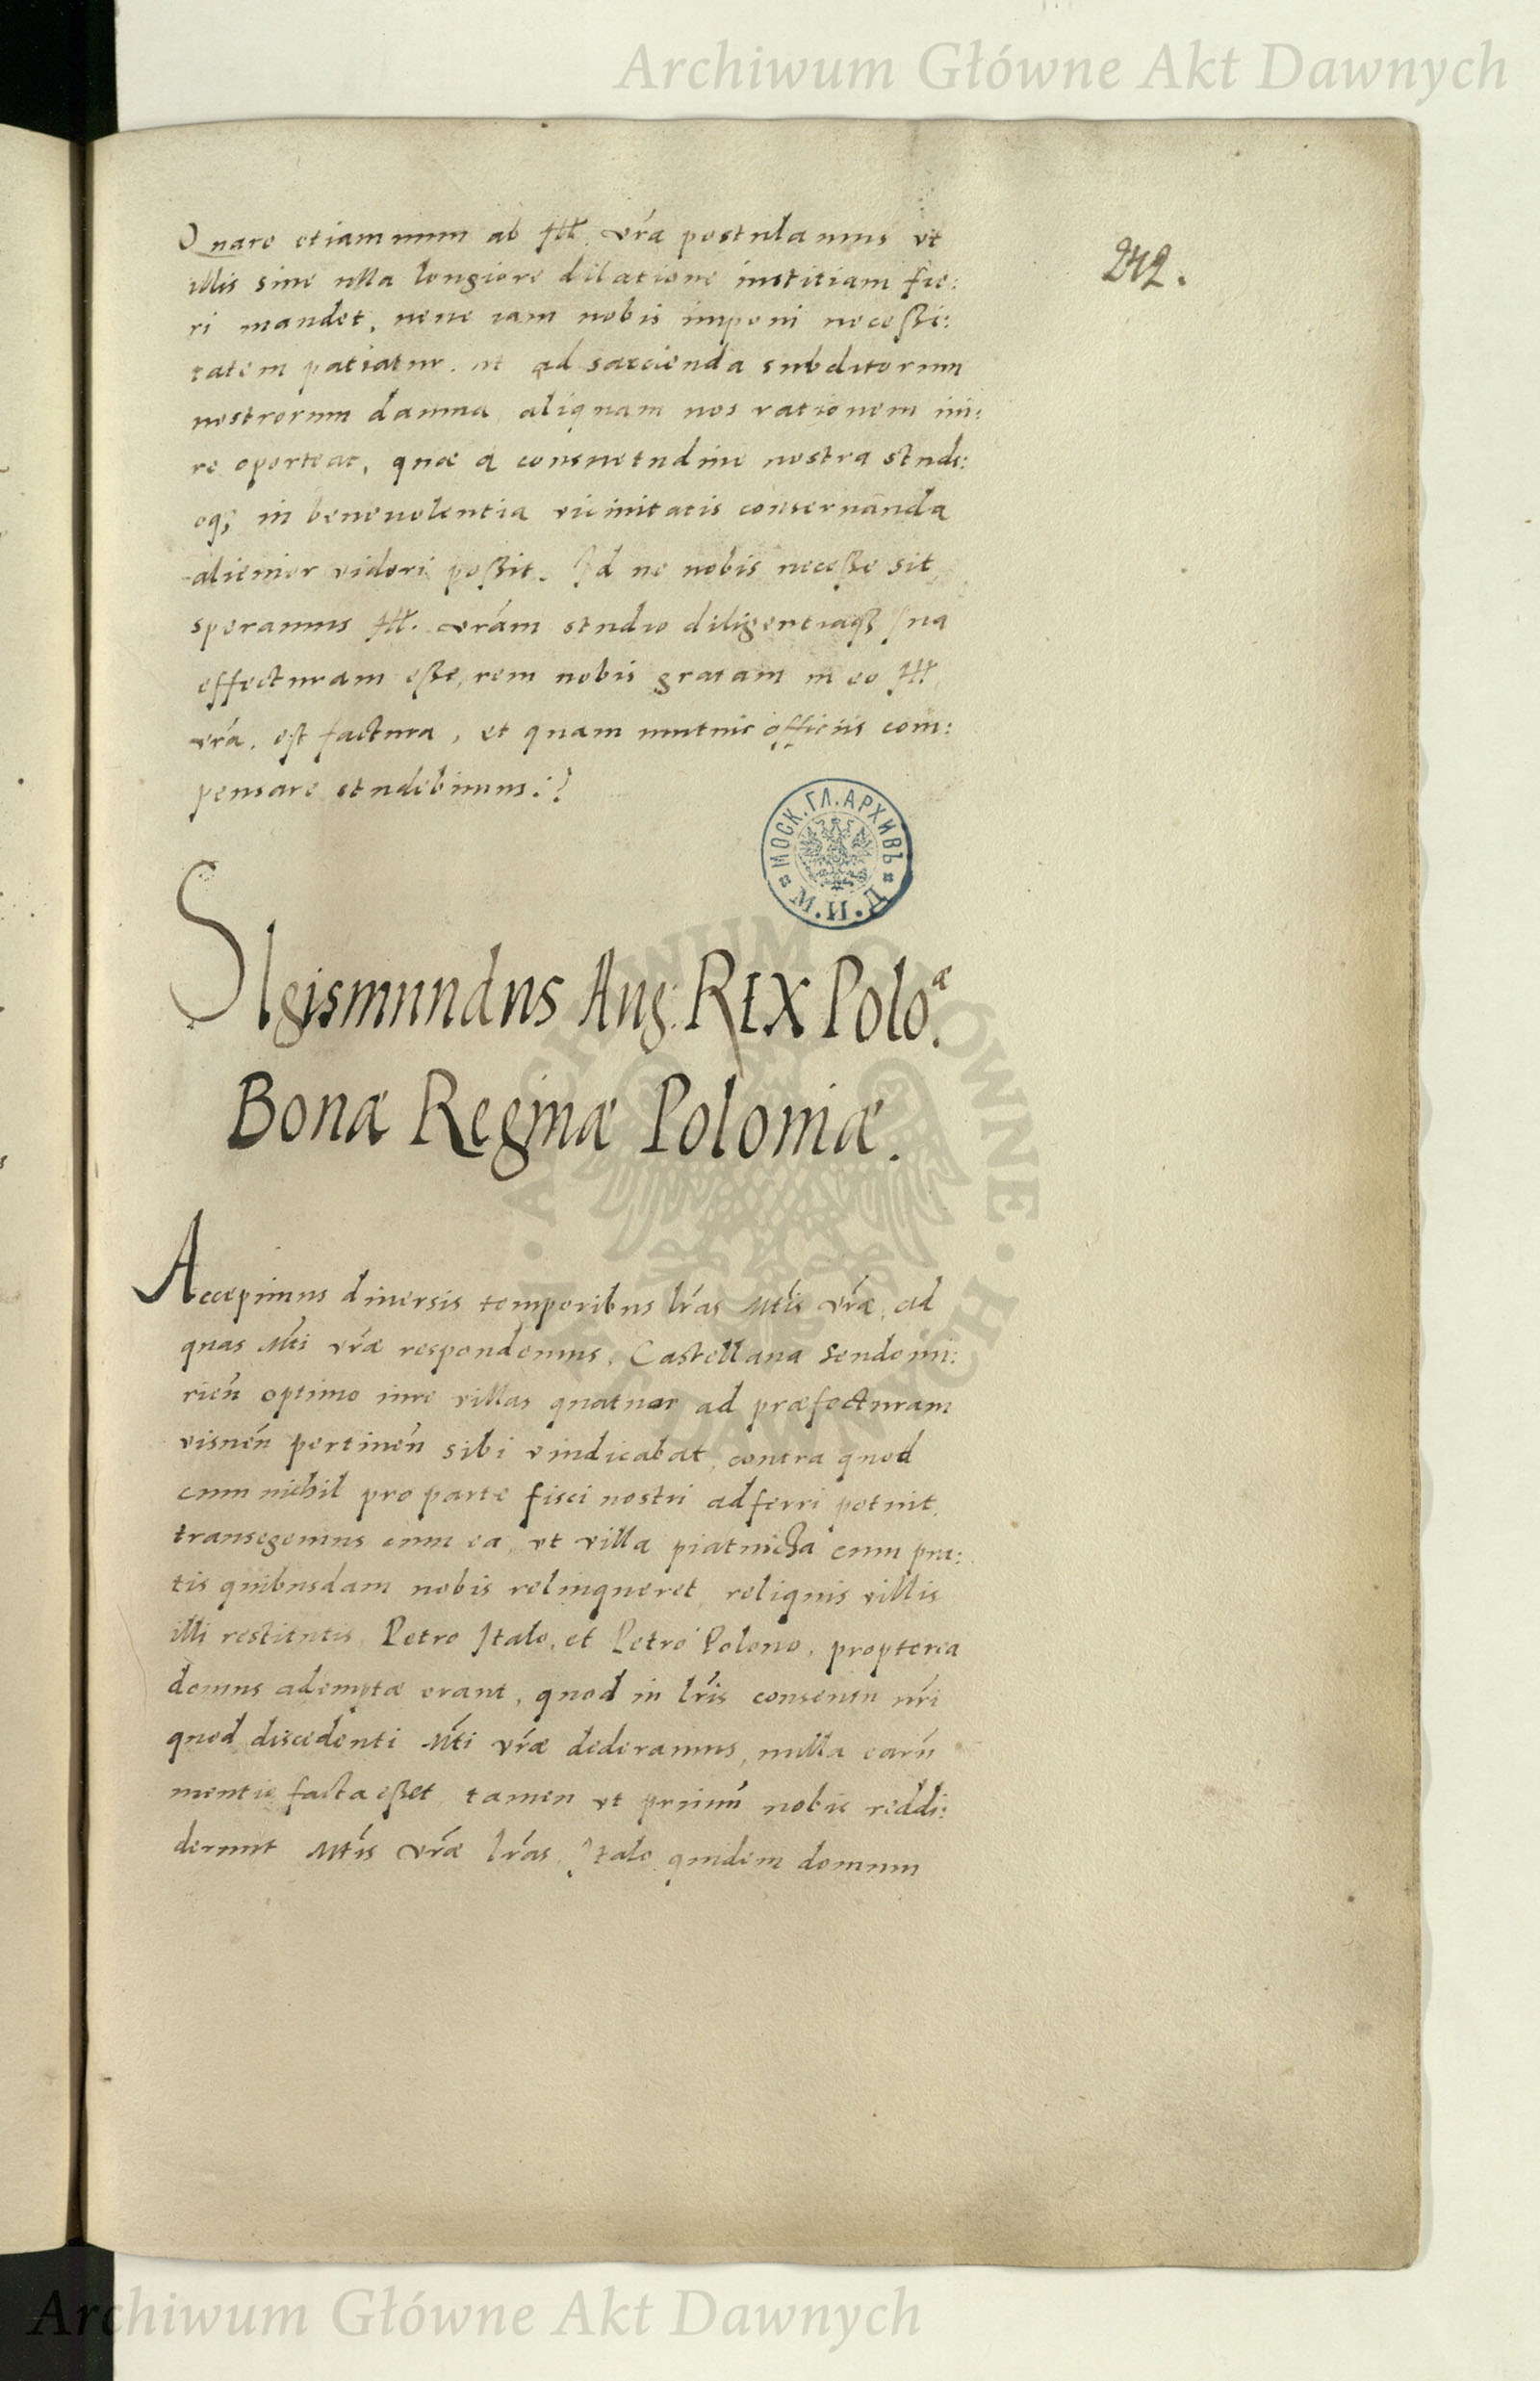 Archiwum Główne Akt Dawnych
242.
Quare etiamnum ab Ill. vrá postulamus vt
illis sine ulla longiore dilatione iustitiam fie:
ri mandet, neue iam nobis imponi necessi:
tatem patiatur. ut ad sarcienda subditorum
nostrorum damna aliquam nos rationem ini:
re oporteat, quæ a consuetudine nostra studi:
oq; in beneuolentia vicinitatis conseruanda
alienior videri possit. Id ne nobis necesse sit
speramus Ill. vrám studio diligentiaq; sua
effecturam esse, rem nobis gratam in eo Ill
vrá. est factura, et quam mutuis officiis com:
pensare studebimus:
МОСК. ГЛ. АРХИВЪ
М. И. Д.
SIgismundus Aug. REX Polo.æ
Bonæ Reginæ Poloniæ.
Accepimus diuersis temporibus lrás Mtis vræ, ad
quas Mti vræ respondemus. Castellana Sendomi:
rien optimo iure villas quatuor ad præfecturam
visnen pertinen sibi vindicabat, contra quod
cum nichil pro parte fisci nostri adferri potuit,
transegemus cum ea, vt villa piatnicza cum pra:
tis quibusdam nobis relinqueret, reliquis villis
illi restitutis. Petro Italo, et Petro Polono, propterea
domus ademptæ erant, quod in lris consensu nri
quod discedenti Mti vræ dederamus, nulla earu
mentio facta esset, tamen vt primu nobis reddi:
derunt Mtis vræ lrás, Italo quidem domum
ARCHIWUM GŁÓWNE AKT DAWNYCH
Archiwum Główne Akt Dawnych